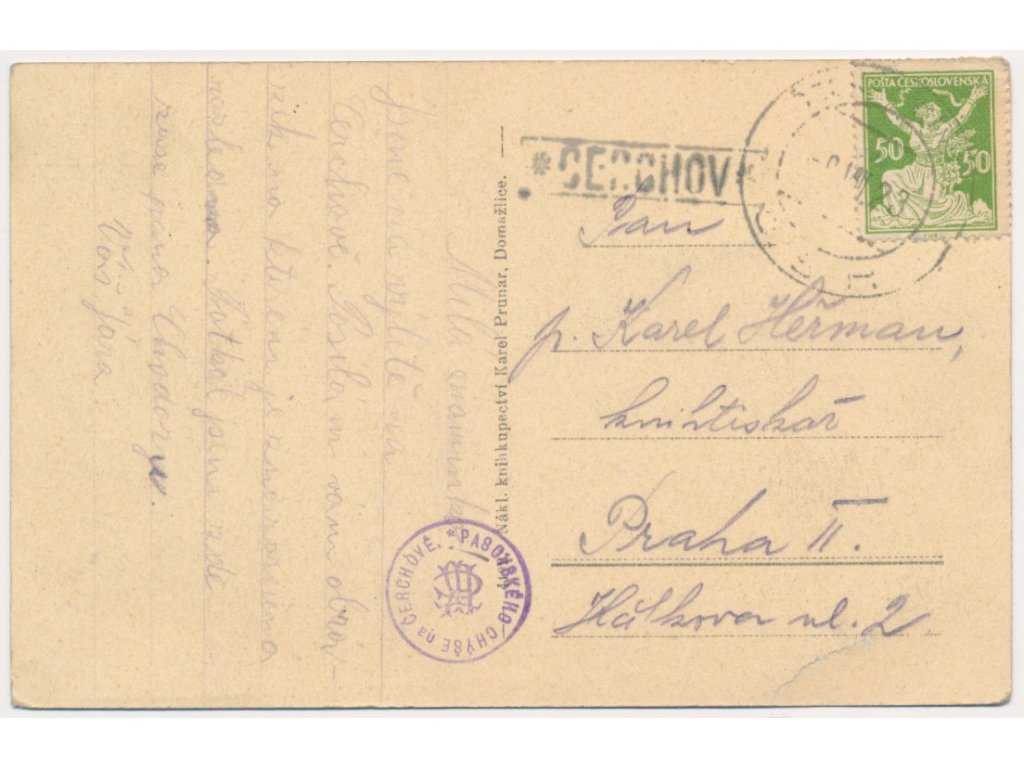 Milá maminko
Jsme na výletě na
Čerchově. Posílám vám obráz-
zek na kterém je znázorněna
rozhledna. Potkal jsem zde
zase pana
Váš Jára.
Nákl. knihkupectví Karel Prunar, Domažlice.
* PASOVSKÉHO CHÝŠE na ČERCHOVĚ.
* ČERCHOV *
POŠTA ČESKOSLOVENSKÁ
50 50
Pan
p. Karel Heřman,
knihtiskař
Praha II.
Hálkova ul. 2.